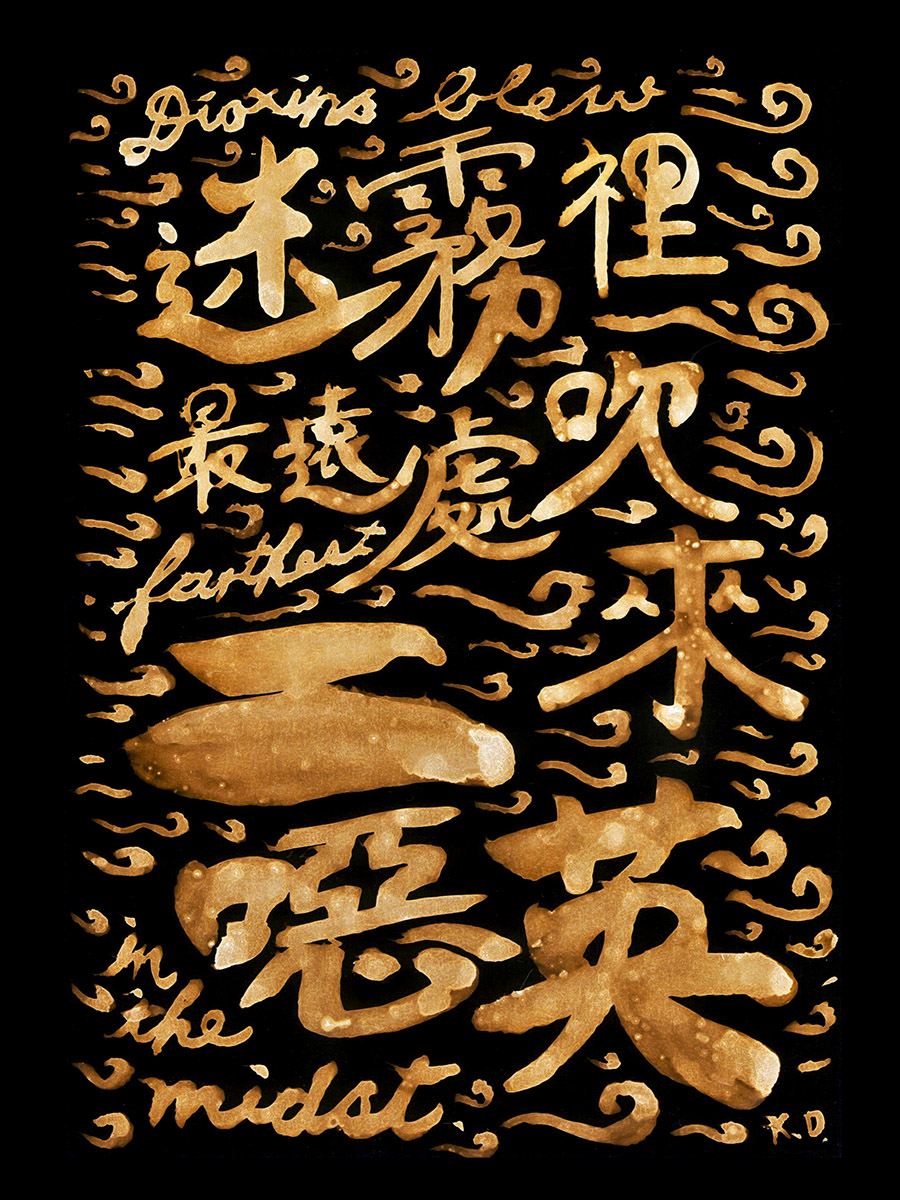 Dioxins blew
迷霧裡
最遠處吹
farthest
來
二
噁英
in
the
midst
K.D.